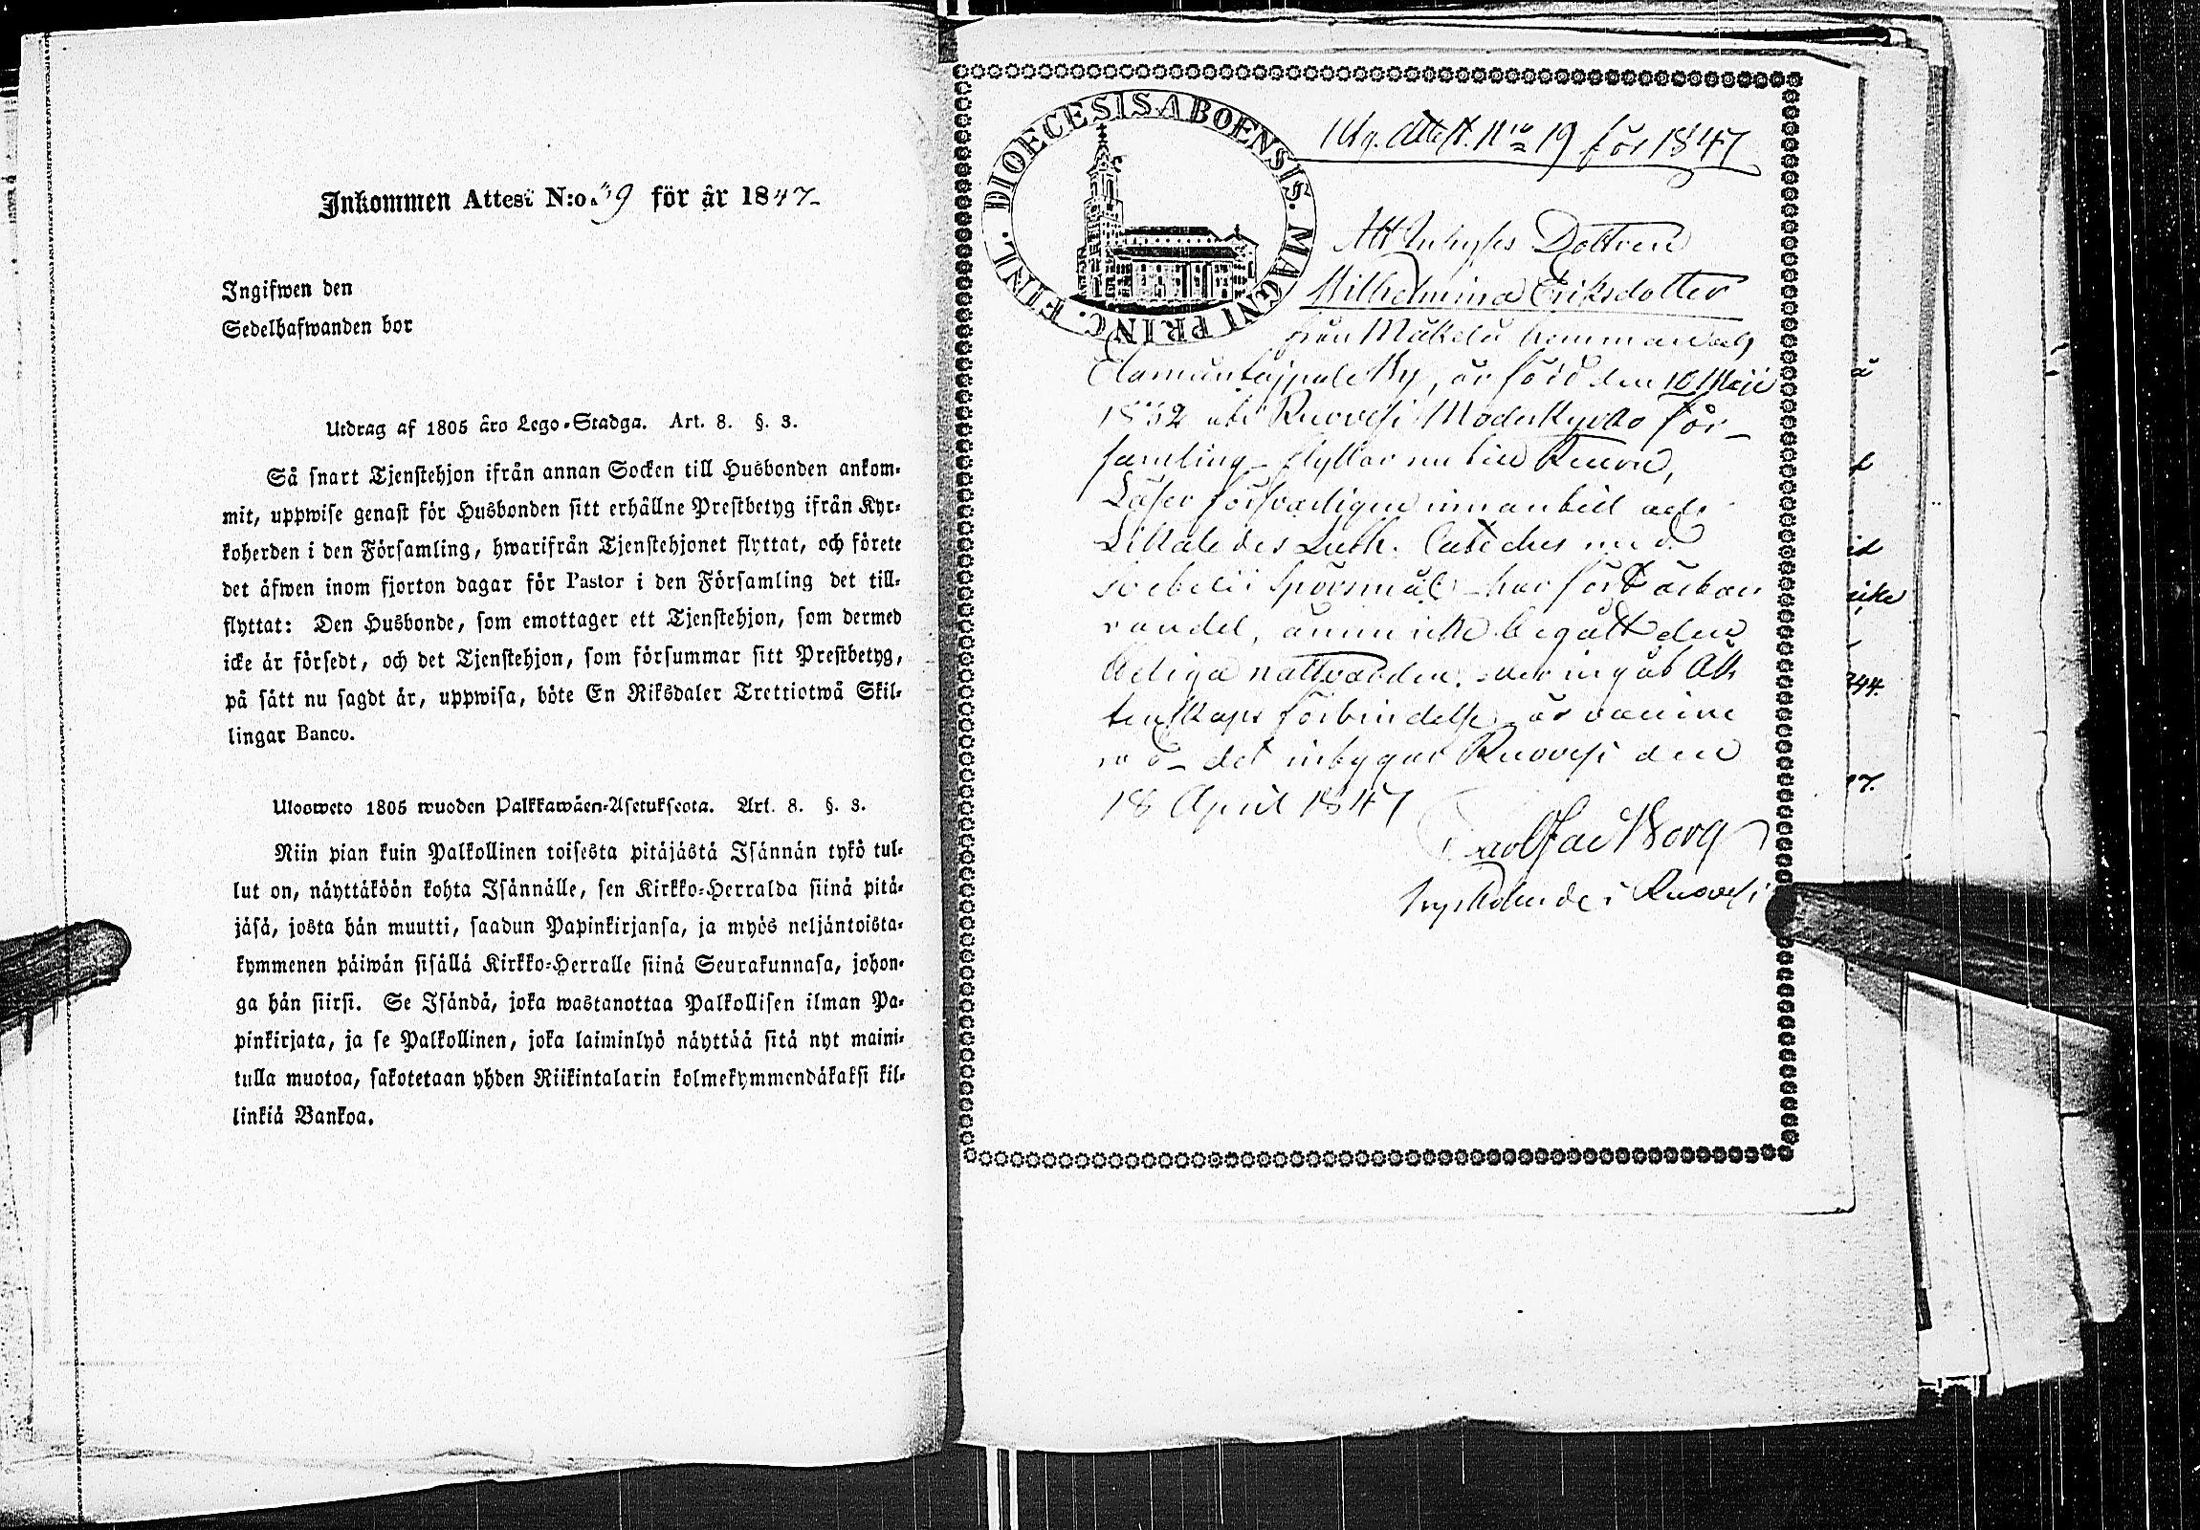 Inkommen Attest N:o 39 för år 1847
Ingifwen den
Sedelhafwanden bor
Utdrag af 1805 års Lego-Stadga. Art. 8. §. 3.
Så snart Tjenstehjon ifrån annan Socken till Husbonden ankom-
mit, uppwise genast för Husbonden sitt erhållne Prestbetyg ifrån Kyr-
koherden i den Församling, hwarifrån Tjenstehjonet flyttat, och förete
det äfwen inom fjorton dagar för Pastor i den Församling det till-
flyttat: Den Husbonde, som emottager ett Tjenstehjon, som dermed
icke är försedt, och det Tjenstehjon, som försummar sitt Prestbetyg,
på sätt nu sagdt är, uppwisa, böte En Riksdaler Trettiotwå Skil-
lingar Banco.
Uloosweto 1805 wuoden Palkkawäen-Asetuksesta. Art. 8. §. 3.
Niin pian kuin Palkollinen toisesta pitäjästä Isännän tykö tul-
lut on, näyttäköön kohta Isännälle, sen Kirkko-Herralda siinä pitä-
jäsä, josta hän muutti, saadun Papinkirjansa, ja myös neljäntoista-
kymmenen päiwän sisällä Kirkko-Herralle siinä Seurakunnasa, johon-
ga hän siirsi. Se Isändä, joka wastanottaa Palkollisen ilman Pa-
pinkirjata, ja se Palkollinen, joka laiminlyö näyttää sitä nyt maini-
tulla muotoa, sakotetaan yhden Riikintalarin kolmekymmendäkaksi kil-
linkiä Bankoa.
DIOECESIS ABOENSIS. MAGNI PRINC. FINL.
Utg. Attest. N:ro 19 för 1847
Att Inhyses Dottren
Wilhelmina Eriksdotter
från Mäkelä hemman och
by, är född den 10 Maji
1832 uti Ruovesi Moderkyrko för-
samling flyttar nu till
Läser försvarligen innantill och
Lilla Luth. Cateches med
Svebelii spörsmål har fört ärbar
vandel, ännu icke begått den
heliga nattvarden, och ingått äk
tenskaps förbindelse, är
det intygar Ruovesi den
18 April 1847
Borg
Kyrkoherde i Ruovesi
344.